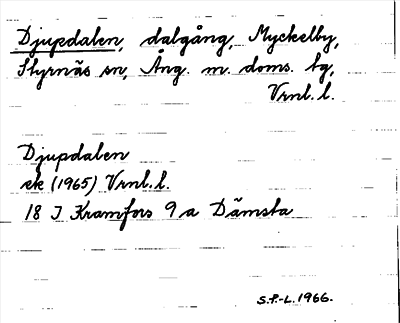 Djupdalen, dalgång, Myckelby,
Styrnäs sn, Ång. m. doms. bg,
Vrnl. l.
Djupdalen
ek (1965) Vrnl. l.
18 I Kramfors 9 a Dämsta
S.P.-L. 1966.